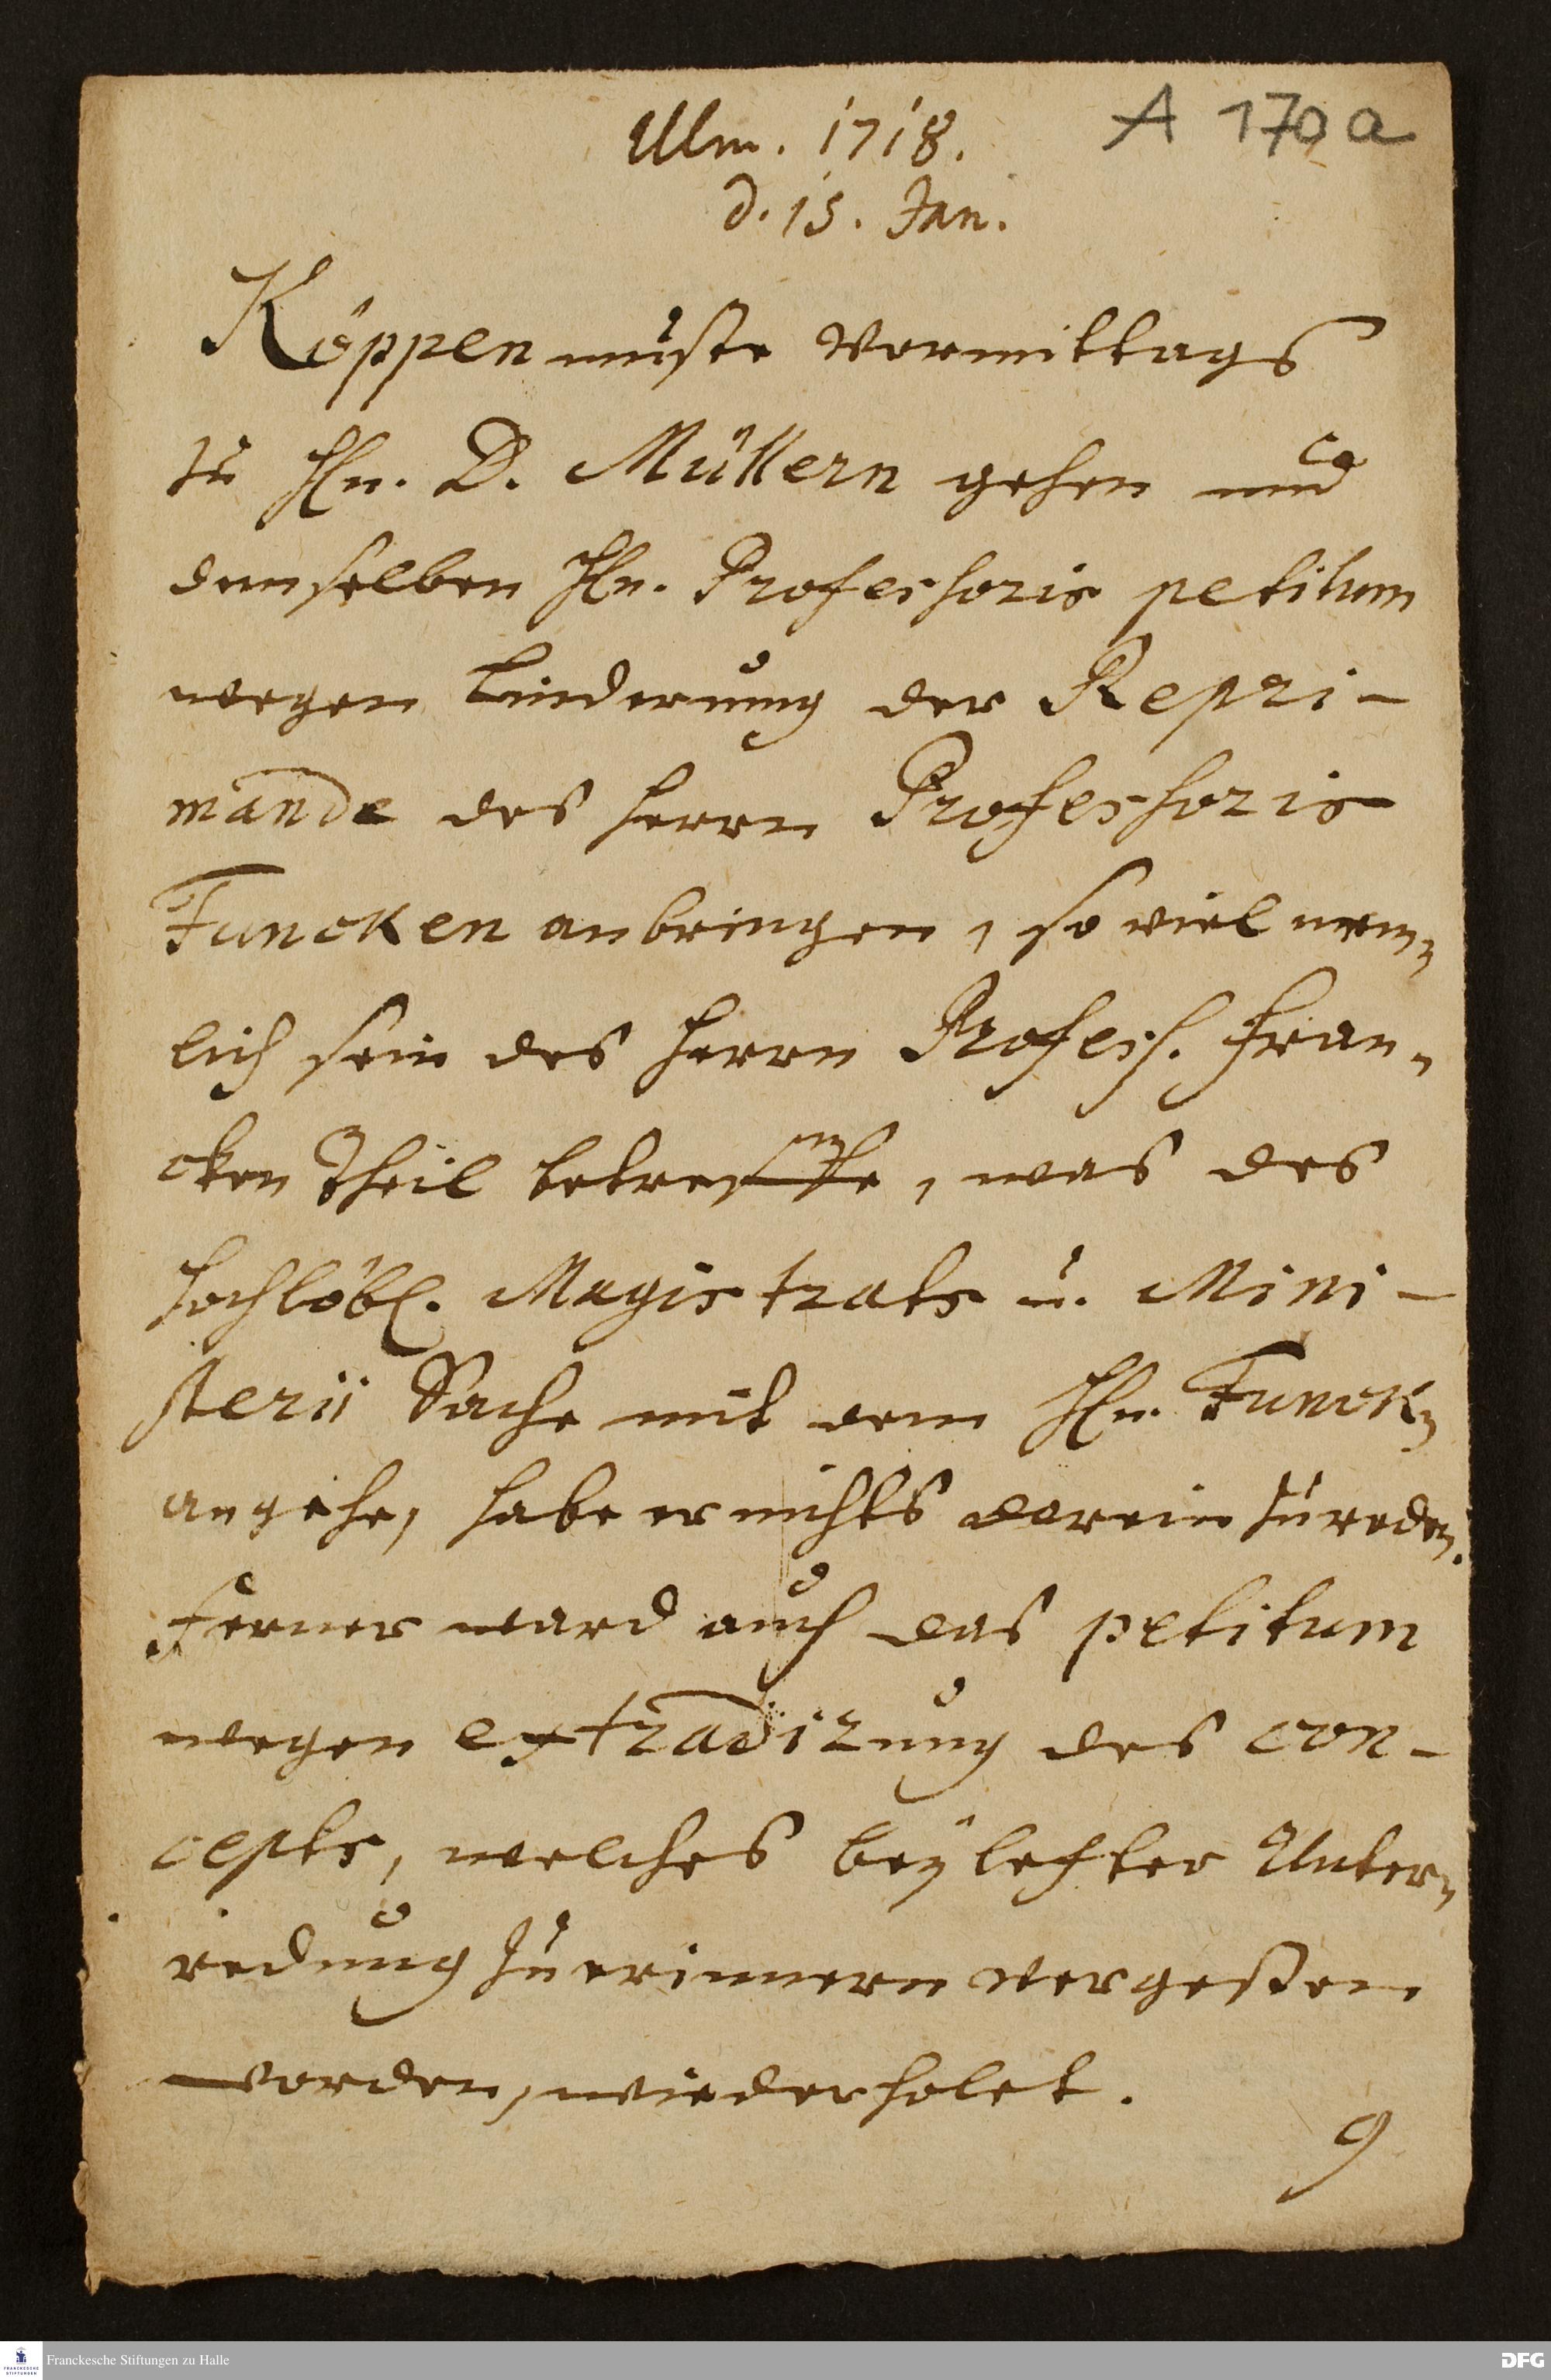 Ulm. 1718. A 170 a
d. 15. Jan.
Köppen muste Vormittags
zu Hn. D. Müllern gehen und
demselben Hn. Professoris petitum
wegen Linderung der Repri-
mande des Herrn Professoris
Funcken anbringen, so viel nem-
lich sein des Herrn Profess. Fran-
cken Theil betreffe, was des
Hochlöbl. Magistrats u. Mini-
sterii Sache mit dem Hn. Funcken
angehe, habe er nichts darein zureden.
Ferner ward auch das petitum
wegen extradirung des con-
cepts, welches bey letzter Unter-
redung zuerinnern vergeßen
worden, wiederholet.
9
Franckesche Stiftungen zu Halle
DFG